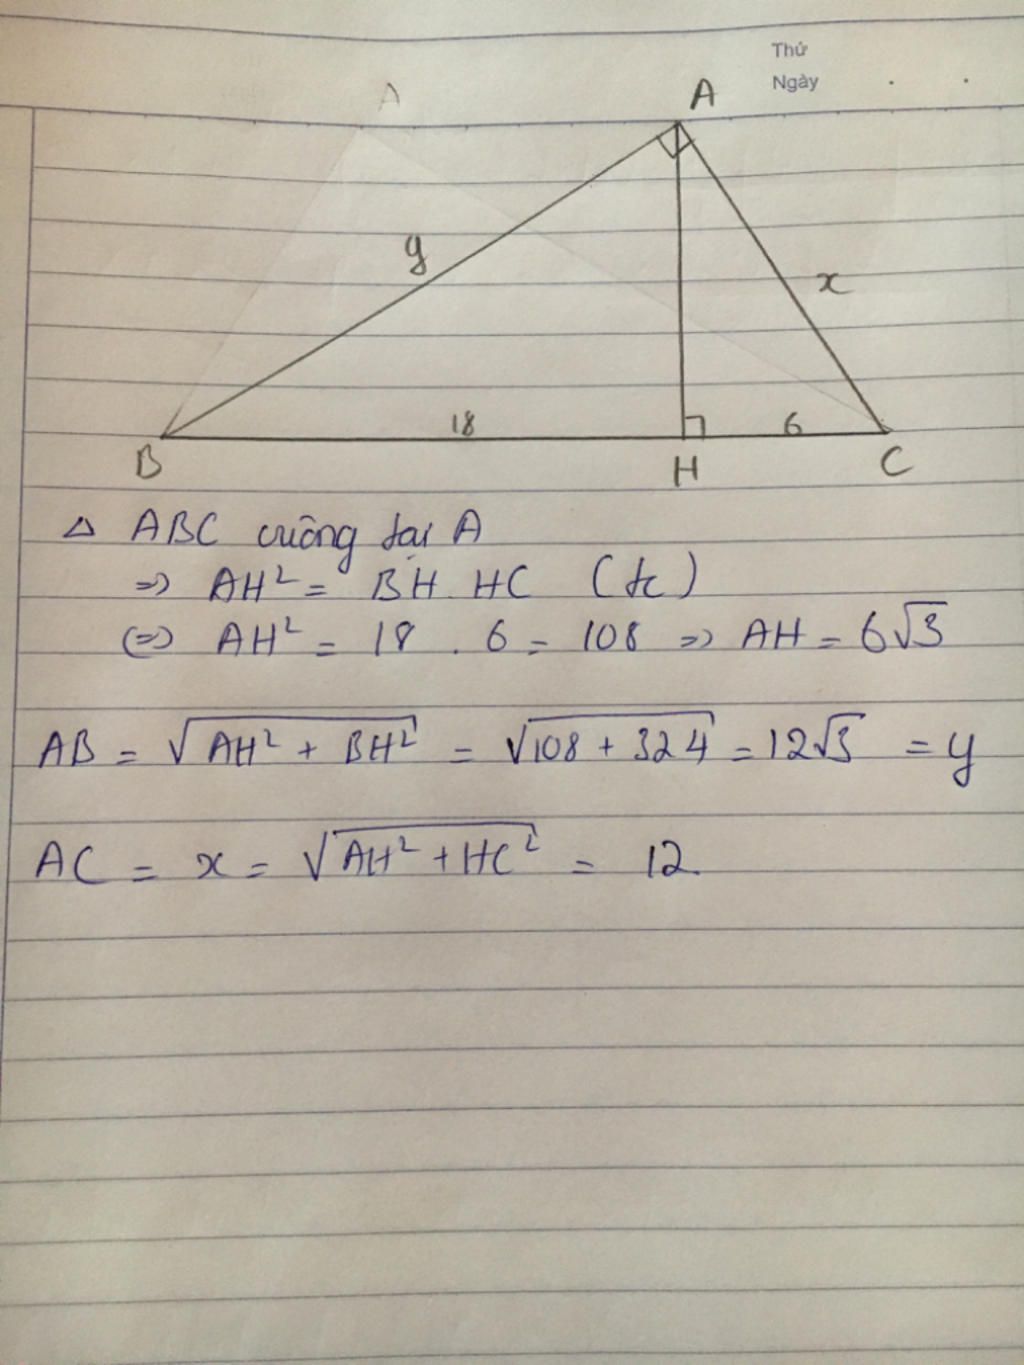 Thứ
Ngày
A
A
y
x
18
6
B
H
C
△ ABC vuông tại A
=> AH² = BH . HC (tc)
(=) AH² = 18 . 6 = 108 => AH = 6√3
AB = √AH² + BH² = √108 + 324 = 12√3 = y
AC = x = √AH² + HC² = 12.